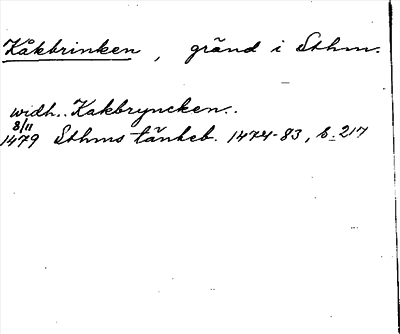 Kåkbrinken, gränd i Sthm.
widh.. Kakbryncken..
8/11
1479 Sthms tänkeb. 1474-83, s. 217